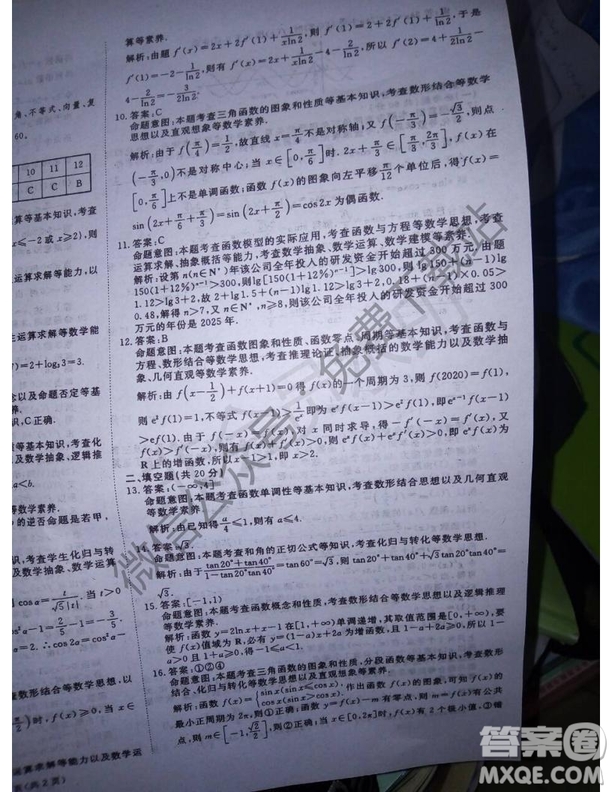 角、不等式、向量、复
60.
10 11 12
C C B
算等基本知识,考查
x≤-2或x≥2),则
运算求解等能力,以
运算求解等数学能
)=2+log₂3=3.
念以及命题否定等基
识,C正确.
等基本知识,考查化
及数学抽象、逻辑推
a<b.
的逆否命题是若甲,
识,考查学生化归与转
及数学抽象、数学运算
数形结合等数学思想,以
运算求解等能力以及数学运
页(共2页)
算等素养.
解析:由题f′(x)=2x+2f′(1)+1/(xln2),则f′(1)=2+2f′(1)+1/ln2,于是
f′(1)=-2-1/ln2,则有f′(x)=2x+1/(xln2)-4-2/ln2,所以f′(2)=4+1/(2ln2)-
4-2/ln2=-3/(2ln2).
10.答案:C
命题意图:本题考查三角函数的图象和性质等基本知识,考查数形结合等数学
思想以及直观想象等数学素养.
解析:由于f(π/4)=1/2,故直线x=π/4不是对称轴;又f(-π/3)=-√3/2,则点
(-π/3,0)不是对称中心;当x∈[0,π/6]时,2x+π/3∈[π/3,2π/3],f(x)在
[0,π/6]上不是单调函数;函数f(x)的图象向左平移π/12个单位后,得f(x)=
sin(2x+π/6+π/3)=sin(2x+π/2)=cos2x为偶函数.
11.答案:C
命题意图:本题考查函数模型的实际应用,考查函数与方程等数学思想,考查
运算求解、抽象概括等能力,考查数学抽象、数学运算、数学建模等素养.
解析:设第n(n∈N*)年该公司全年投入的研发资金开始超过300万元,由题
150(1+12%)ⁿ⁻¹>300,则lg[150(1+12%)ⁿ⁻¹]>lg300,则lg150+(n-1)lg
1.12>lg3+2,故2+lg1.5+(n-1)lg1.12>lg3+2,0.18+(n-1)×0.05>
0.48,解得n>7,又n∈N*,n≥8,则该公司全年投入的研发资金开始超过300
万元的年份是2025年.
12.答案:B
命题意图:本题考查函数图象和性质、函数零点、周期等基本知识,考查函数与
方程、数形结合等数学思想,考查推理论证、抽象概括的数学能力以及数学抽
象、几何直观等数学素养.
解析:由f(x-1/2)+f(x+1)=0得f(x)的一个周期为3,则f(2020)=f(1),
则e²f(1)=1,不等式f(x-1)>1/eˣ即为eˣf(x-1)>e²f(1),即eˣ⁻¹f(x-1)
>ef(1).由于f(-x)=f(x),对x同时求导,得-f′(-x)=f′(x),又
f(x)>f′(-x),则有f(x)+f′(x)>0,则eˣf(x)+eˣf′(x)>0,即eˣf(x)为
R上的增函数,所以x-1>1,即x>2.
二、填空题(共20分)
13.答案:(-∞,4]
命题意图:本题考查函数单调性等基本知识,考查数形结合思想以及几何直观
等数学素养
解析:由已知得a/4≤1,则有a≤4.
14.答案:√3.
命题意图:本题考查和角的正切公式等知识,考查化归与转化等数学思想.
解析:由于(tan20°+tan40°)/(1-tan20°tan40°)=tan60°=√3,则tan20°+tan40°+√3tan20°tan40°=
√3.
15.答案:[-1,1)
命题意图:本题考查函数概念和性质,考查数形结合等数学思想以及逻辑推理
等数学素养.
解析:函数y=2lnx+x-1在[1,+∞)单调递增,其取值范围是[0,+∞);要
使f(x)值域为R,必有y=(1-a)x+2a为增函数,且1-a+2a≥0,所以1-
a>0且1+a≥0,得-1≤a<1.
16.答案:①②④
命题意图:本题考查三角函数的图象和性质、分段函数等基本知识,考查数形
结合、化归与转化等数学思想以及直观想象等素养.
解析:函数f(x)={sinx(sinx≤cosx), cosx(sinx>cosx).作出函数f(x)的图象,可知f(x)的
最小正周期为2π,则①正确;函数y=f(x)-m有零点,则m=f(x)有公共
点,则m∈[-1,√2/2],则②正确;当x∈[0,2π]时,f(x)有2个极小值,③错
微信公众号:免费下载站
答案圈
MXQE.COM